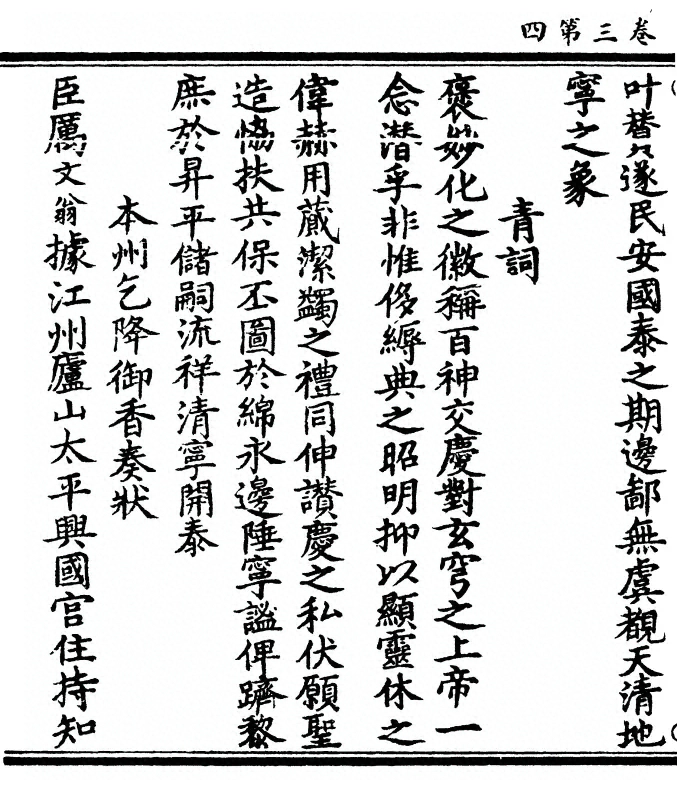 卷三第四
叶替久遂民安國泰之期邊鄙無虞覩天清地
寧之象
青詞
褒妙化之徽稱百神交慶對玄穹之上帝一
念潛孚非惟侈縟典之昭明抑以顯靈休之
偉赫用蕆潔蠲之禮同伸讃慶之私伏願聖
造恊扶共保丕圖於綿永邊陲寧謐俾躋黎
庶於昇平儲嗣流祥清寧開泰
本州乞降御香奏狀
臣厲文翁據江州廬山太平興國宮住持知